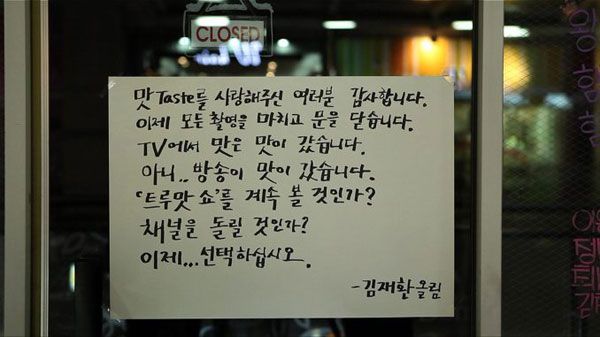 CLOSED
맛 Taste를 사랑해주신 여러분 감사합니다.
이제 모든 촬영을 마치고 문을 닫습니다.
TV에서 맛은 맛이 갔습니다.
아니... 방송이 맛이 갔습니다.
'트루맛 쇼'를 계속 볼 것인가?
채널을 돌릴 것인가?
이제... 선택하십시오.
-김재환 올림